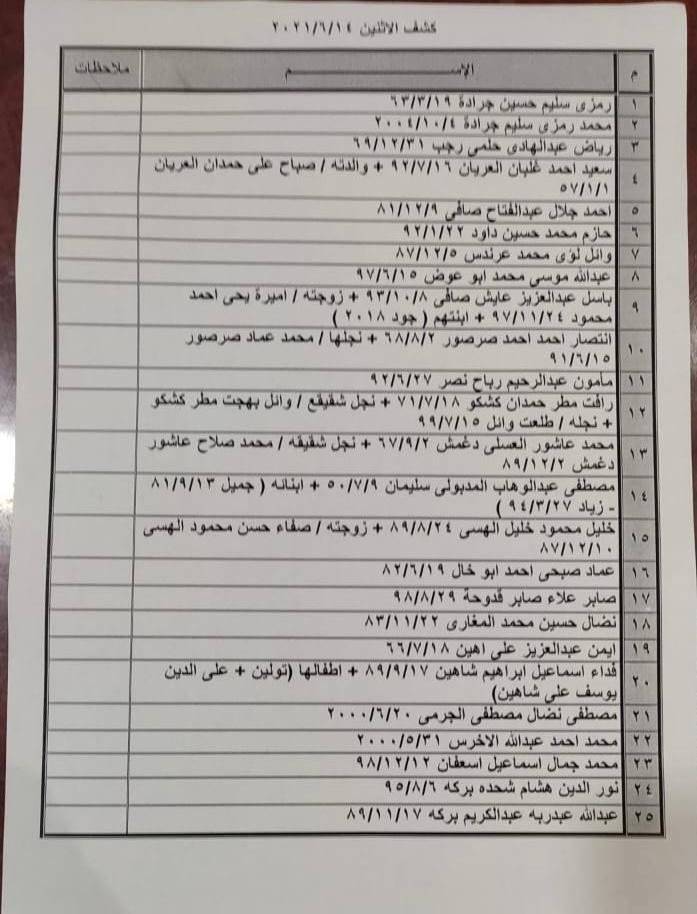 كشف الاثنين ٢٠٢١/٦/١٤
م الإســـــــــــــــــــــم ملاحظات
١ رمزى سليم حسين جرادة ٦٣/٣/١٩
٢ محمد رمزى سليم جرادة ٢٠٠٤/١٠/٤
٣ رياض عبدالهادى حلمى رجب ٦٩/١٢/٣١
٤ سعيد احمد غلبان العريان ٩٢/٧/١٦ + والدته / صباح على حمدان العريان
٥٧/١/١
٥ احمد جلال عبدالفتاح صافى ٨١/١٢/٩
٦ حازم محمد حسين داود ٩٢/١/٢٢
٧ وائل لؤى محمد عرندس ٨٧/١٢/٥
٨ عبدالله موسى محمد ابو عوض ٩٧/٦/١٥
٩ باسل عبدالعزيز عايش صافى ٩٣/١٠/٨ + زوجته / اميرة يحى احمد
محمود ٩٧/١١/٢٤ + ابنتهم ( جود ٢٠١٨ )
١٠ انتصار احمد احمد صرصور ٦٨/٨/٢ + نجلها / محمد عماد صرصور
٩١/٦/١٥
١١ مامون عبدالرحيم رباح نصر ٩٢/٦/٢٧
١٢ رافت مطر حمدان كشكو ٧١/٧/١٨ + نجل شقيقع / وائل بهجت مطر كشكو
+ نجله / طلعت وائل ٩٩/٧/١٥
١٣ محمد عاشور العسلى دغمش ٦٧/٩/٢ + نجل شقيقه / محمد صلاح عاشور
دغمش ٨٩/١٢/٢
١٤ مصطفى عبدالوهاب المدبولى سليمان ٥٠/٧/٩ + ابنائه ( جميل ٨١/٩/١٣
- زياد ٩٤/٣/٢٧ )
١٥ خليل محمود خليل الهسى ٨٩/٨/٢٤ + زوجته / صفاء حسن محمود الهسى
٨٧/١٢/١٠
١٦ عماد صبحى احمد ابو خال ٨٢/٦/١٩
١٧ صابر علاء صابر قدوحة ٩٨/٨/٢٩
١٨ نضال حسين محمد المغارى ٨٣/١١/٢٢
١٩ ايمن عبدالعزيز على اهين ٦٦/٧/١٨
٢٠ فداء اسماعيل ابراهيم شاهين ٨٩/٩/١٧ + اطفالها (تولين + على الدين
يوسف على شاهين)
٢١ مصطفى نضال مصطفى الجرمى ٢٠٠٠/٦/٢٠
٢٢ محمد احمد عبدالله الاخرس ٢٠٠٠/٥/٣١
٢٣ محمد جمال اسماعيل اسعفان ٩٨/١٢/١٢
٢٤ نور الدين هشام شحده بركه ٩٥/٨/٦
٢٥ عبدالله عبدربه عبدالكريم بركه ٨٩/١١/١٧